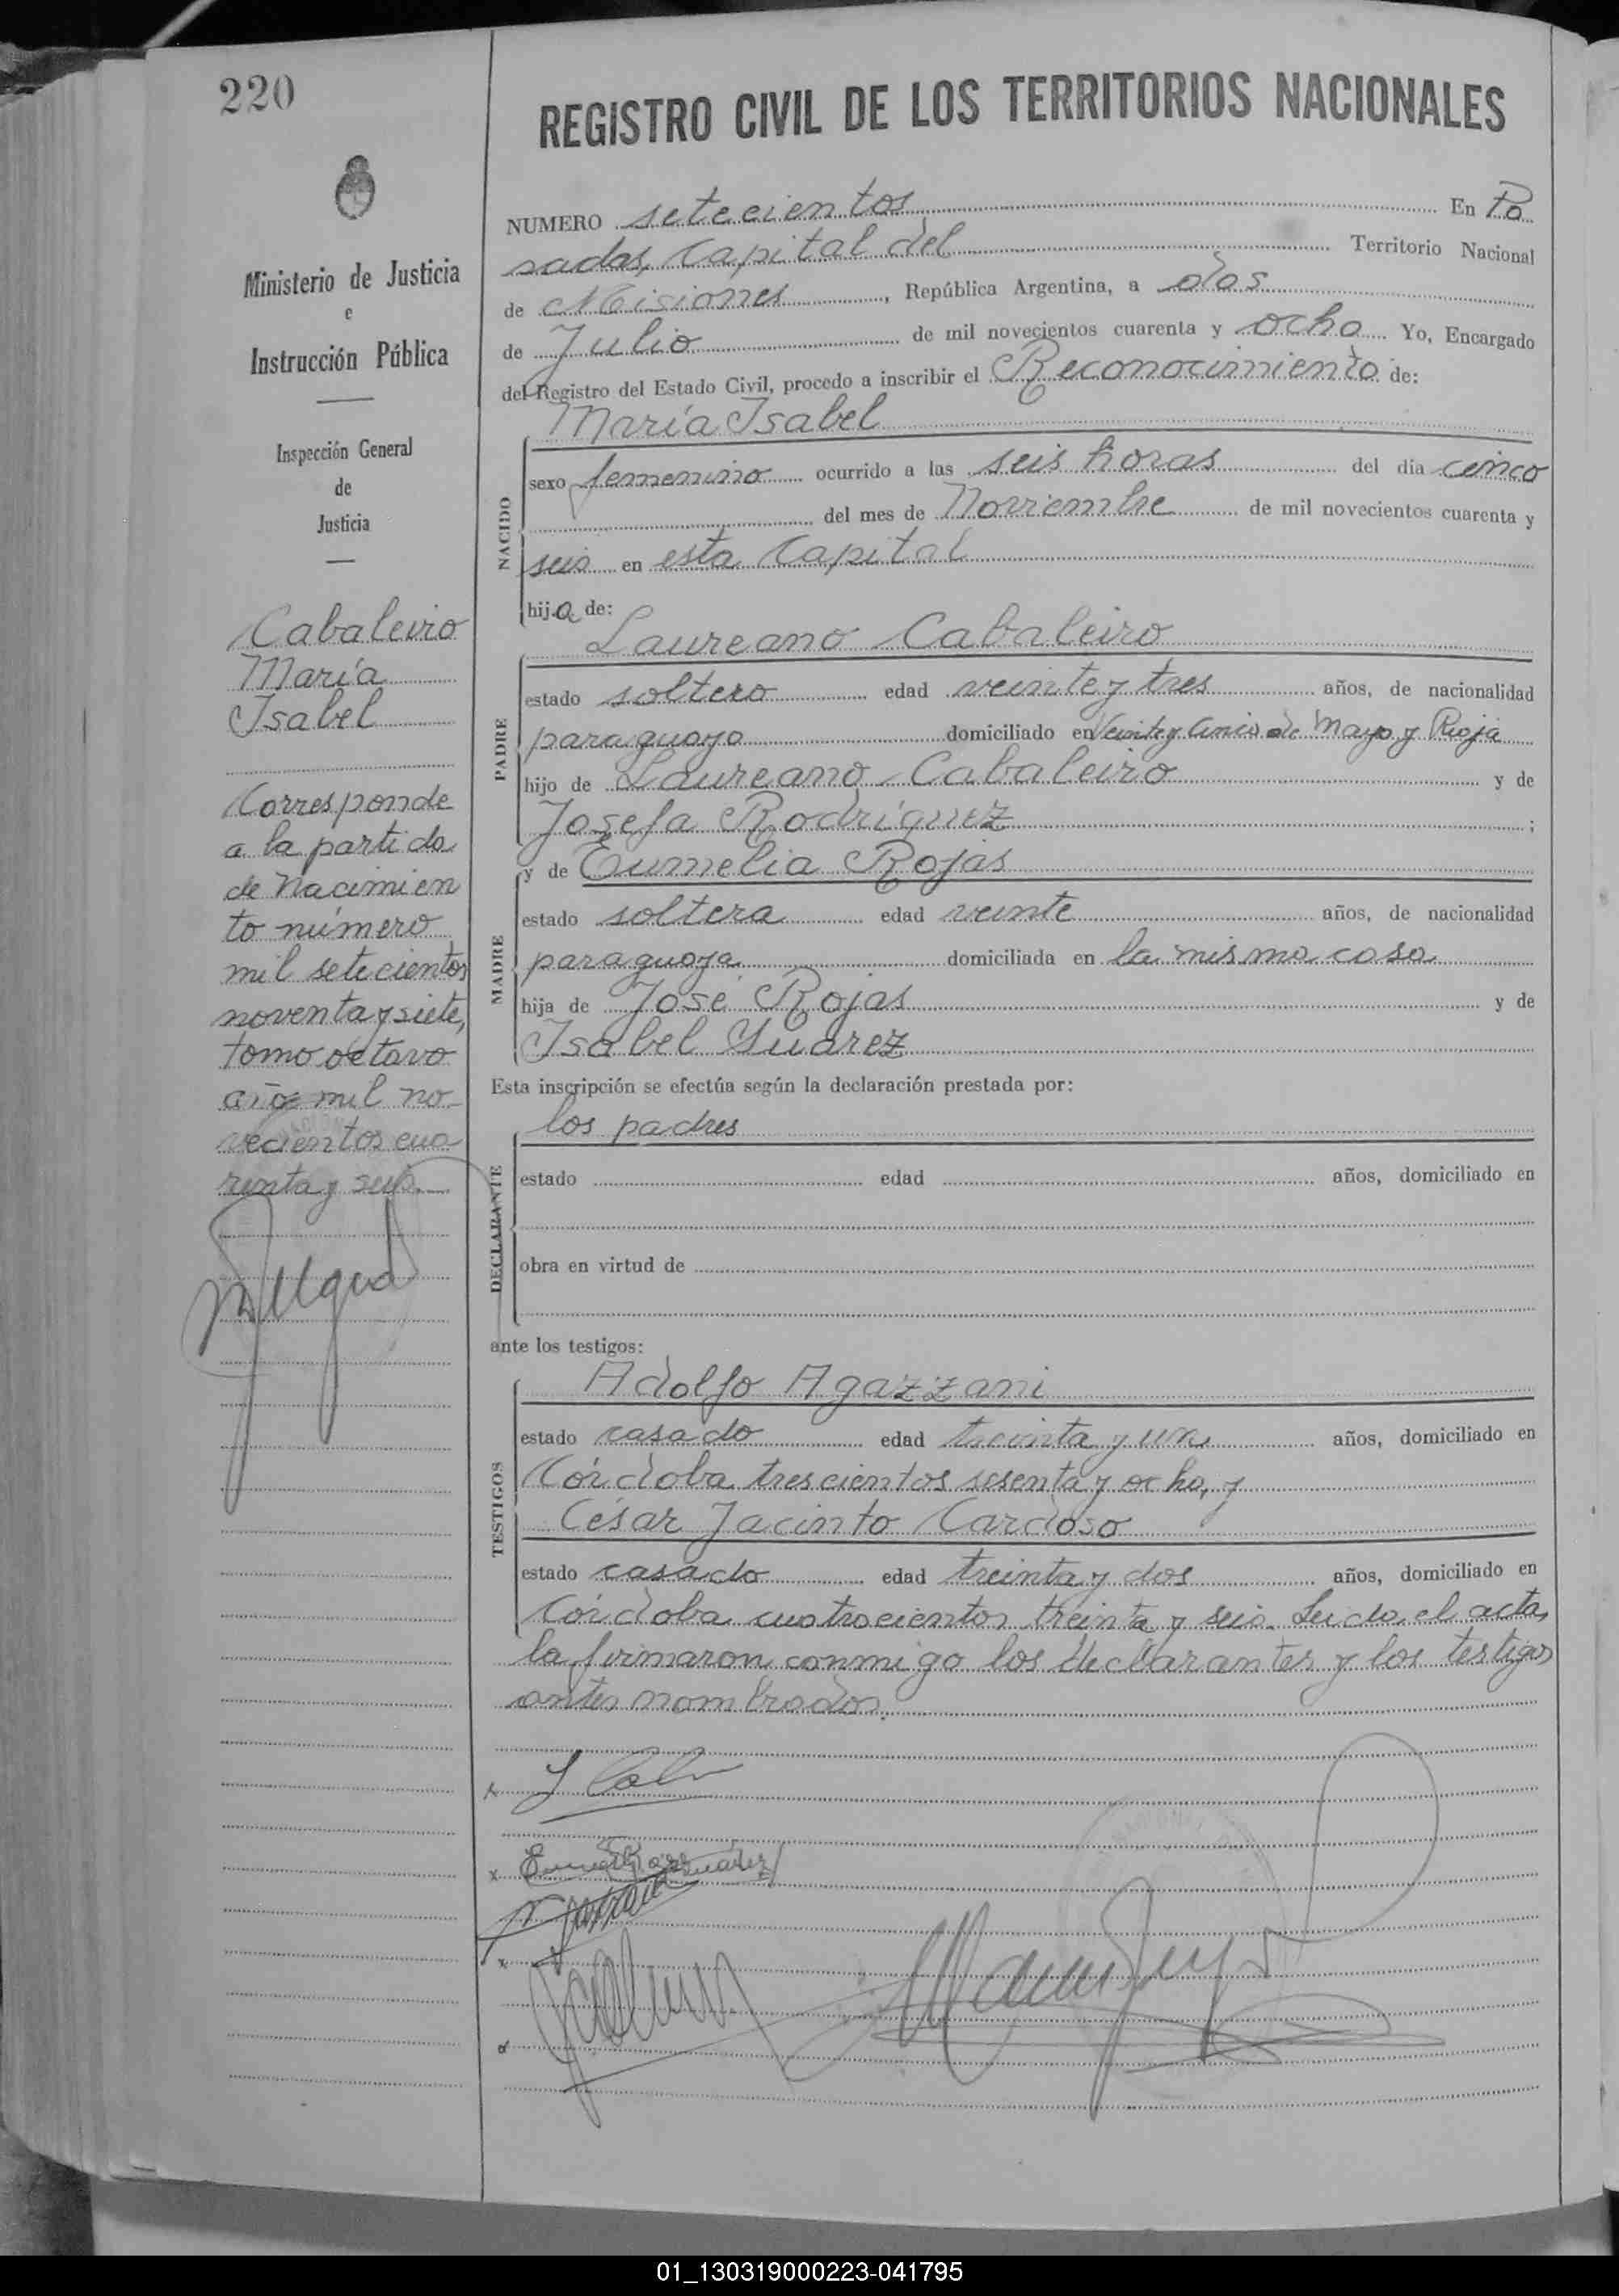 220
REGISTRO CIVIL DE LOS TERRITORIOS NACIONALES
NUMERO setecientos En Po
sadas, Capital del Territorio Nacional
de Misiones, República Argentina, a dos
de Julio de mil novecientos cuarenta y ocho Yo, Encargado
del Registro del Estado Civil, procedo a inscribir el Reconocimiento de:
María Isabel
NACIDO
sexo femenino ocurrido a las seis horas del día cinco
del mes de Noviembre de mil novecientos cuarenta y
seis en esta Capital
hija de:
Laureano Cabaleiro
PADRE
estado soltero edad veinte y tres años, de nacionalidad
paraguayo domiciliado en Veinte y Cinco de Mayo y Rioja
hijo de Laureano Cabaleiro y de
Josefa Rodríguez;
y de Eumelia Rojas
MADRE
estado soltera edad veinte años, de nacionalidad
paraguaya domiciliada en la misma casa
hija de José Rojas y de
Isabel Suárez
Esta inscripción se efectúa según la declaración prestada por:
los padres
DECLARANTE
estado edad años, domiciliado en
obra en virtud de
ante los testigos:
Adolfo Agazzani
TESTIGOS
estado casado edad treinta y un años, domiciliado en
Córdoba trescientos sesenta y ocho, y
César Jacinto Cardoso
estado casado edad treinta y dos años, domiciliado en
Córdoba cuatrocientos treinta y seis. Leida el acta,
la firmaron conmigo los declarantes y los testigos
antes nombrados.
Ministerio de Justicia
e
Instrucción Pública
Inspección General
de
Justicia
Cabaleiro
María
Isabel
Corresponde
a la partida
de Nacimien
to número
mil setecientos
noventa y siete,
tomo octavo
año mil no-
vecientos cua
renta y seis.
01_130319000223-041795